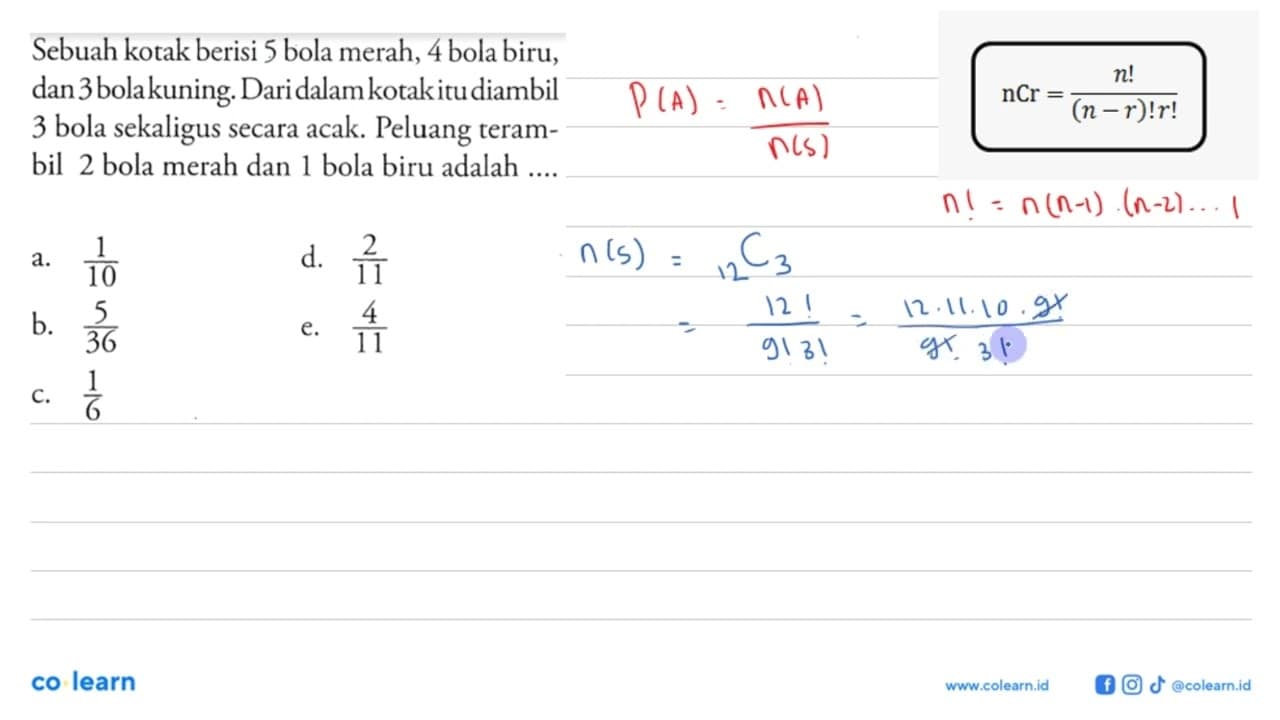 Sebuah kotak berisi 5 bola merah, 4 bola biru,
dan 3 bola kuning. Dari dalam kotak itu diambil
3 bola sekaligus secara acak. Peluang teram-
bil 2 bola merah dan 1 bola biru adalah ....
a. 1/10
b. 5/36
c. 1/6
d. 2/11
e. 4/11
P(A) = n(A)/n(S)
nCr = n!/(n − r)!r!
n! = n(n-1).(n-2)...1
n(S) = 12C3
= 12!/9!3! = 12.11.10.9!/9!.3!
co learn
www.colearn.id
@colearn.id